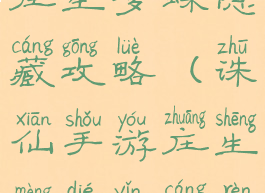 庄生梦蝶隐
cáng gōng lüè zhū
藏攻略（诛
xiān shǒu yóu zhuāng shēng
仙手游庄生
mèng dié yǐn cáng rèn